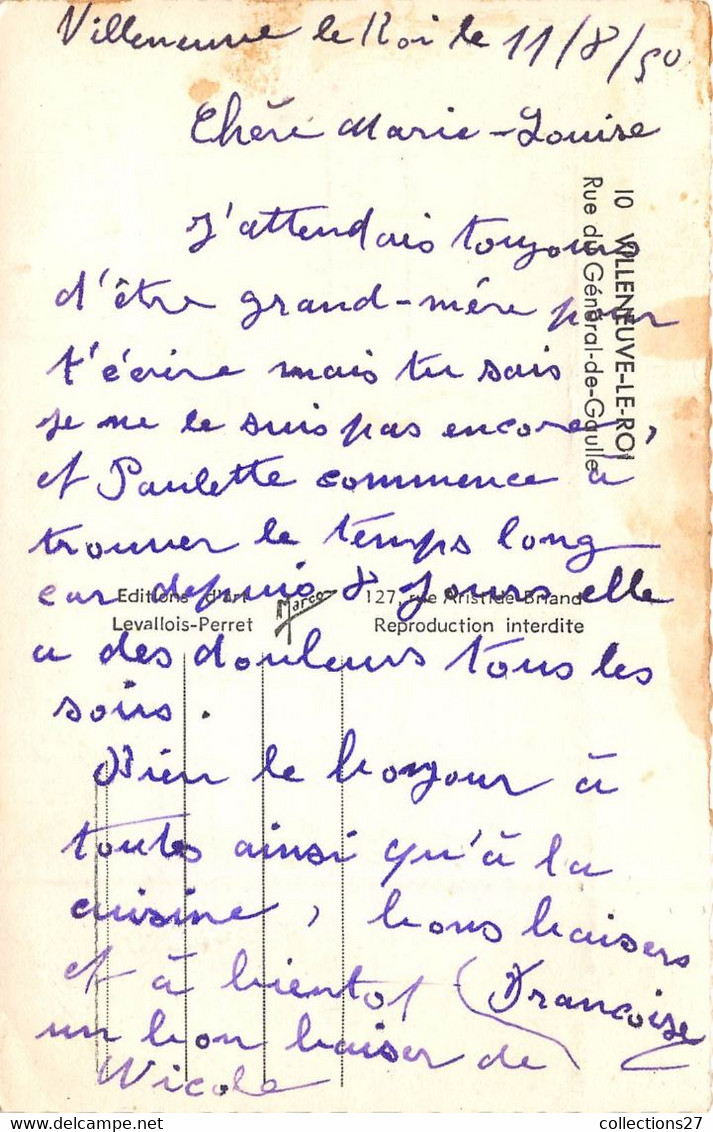 Villeneuve le Roi le 11/8/50
Chère Marie-Louise
J'attendais toujours
d'être grand-mère pour
t'écrire mais tu sais
je ne le suis pas encore,
et Paulette commence à
trouver le temps long
car depuis 8 jours elle
a des douleurs tous les
soirs.
Bien le bonjour à
toutes ainsi qu'à la
cuisine, bons baisers
et à bientot Francoise
un bon baiser de
Nicole
10 VILLENEUVE-LE-ROI
Rue du Général-de-Gaulle
Editions d'art Marco 127, rue Aristide Briand
Levallois-Perret Reproduction interdite
collections27